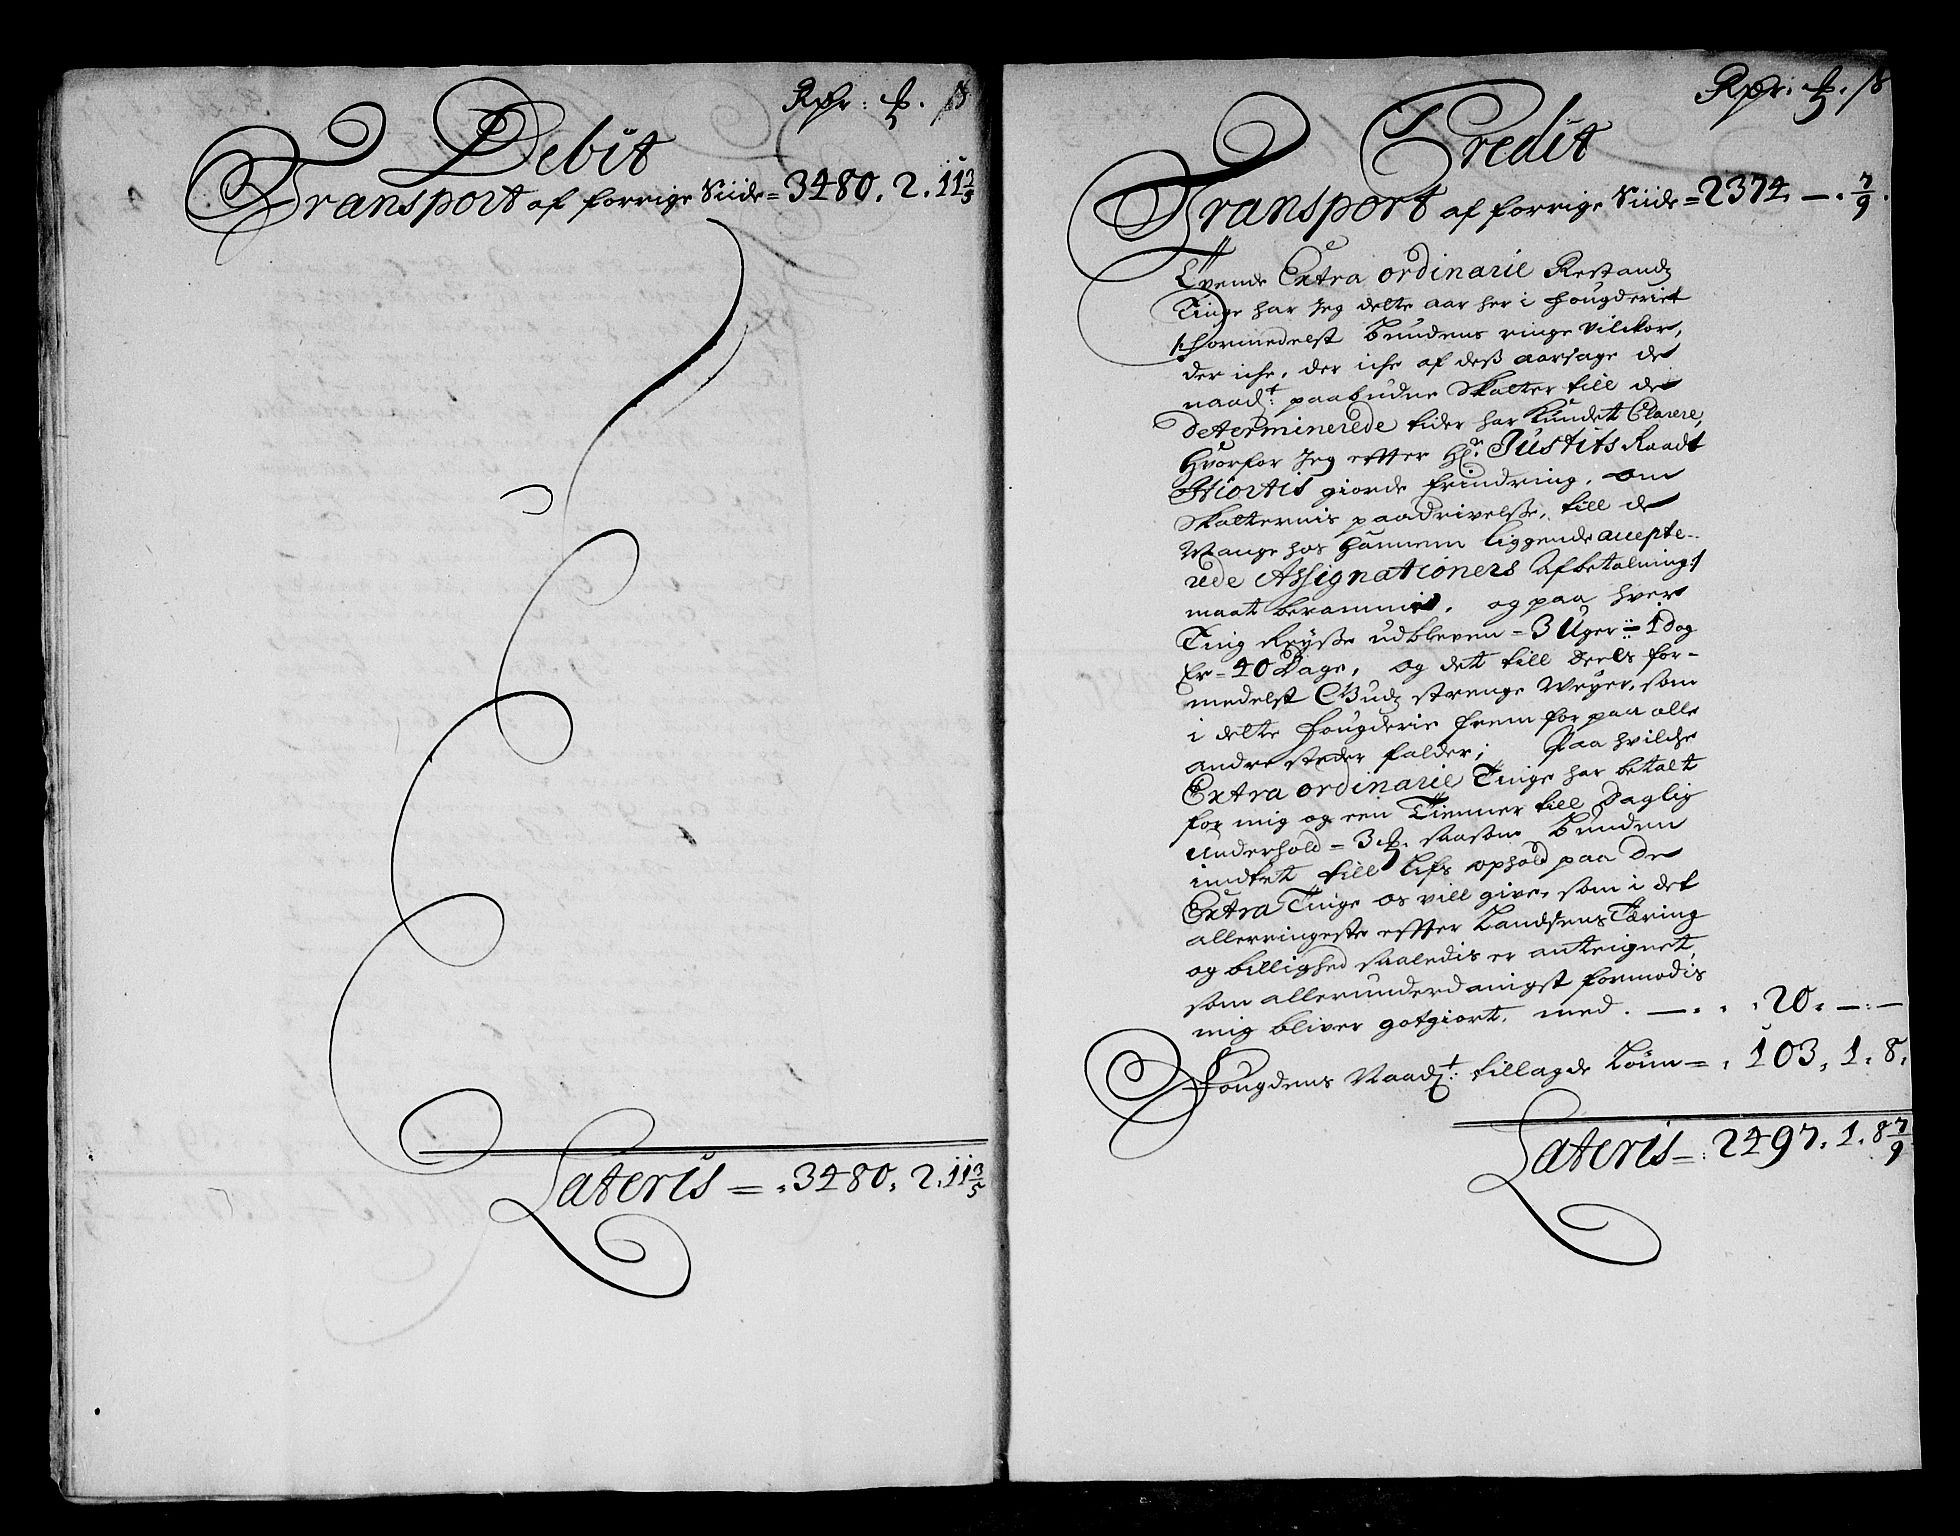 Rdr: ℔. ß
Debit
Transport af forrige Siide = 3480. 2. 11 3/5
Lateris = . 3480. 2. 11 3/5
Rdr: ℔. ß
Credit
Transport af forrige Siide = 2374. — . 7/9.
Tvende Extra ordinarie Restandz
Tinge har Jeg dette aar her i fougderiet
formedelst Bundens ringe vilckor,
der iche, der iche af deß aarsage de
naadt: paabudne Skatter till de
determinerede tider har kundet Clarere,
Hvorfor Jeg effter Hr: Justits Raadt
Hiortis giorde Erindring, om
Skatternis paadrivelße, till de
Mange hos hannem liggende accepte-
rede Assignationers Afbetalning:/
maat berammit, og paa hver
Ting Reyße udbleven = 3 Uger :: 1 dag
Er = 40 Dage, og det till deels for-
medelst Gudz strenge Veyer, som
i dette fougderie frem for paa alle
andre steder falder; Paa hvilche
Extra ordinarie Tinge har betalt
for mig og een Tienner till Daglig
Underhold = 3 ℔. saasom Bunden
indtet till lifs ophold paa De
Extra Tinge os vill give, som i det
allerringeste effter Landsens Tæring
og billighed saaledis er anteignet,
som allerunderdanigst formodis
mig bliver gotgiort, med . — . . . 20. — : —
Fougdens Naadt: tillagde Lönn = . 103. 1. 8.
Lateris = . 2497. 1. 8 7/9